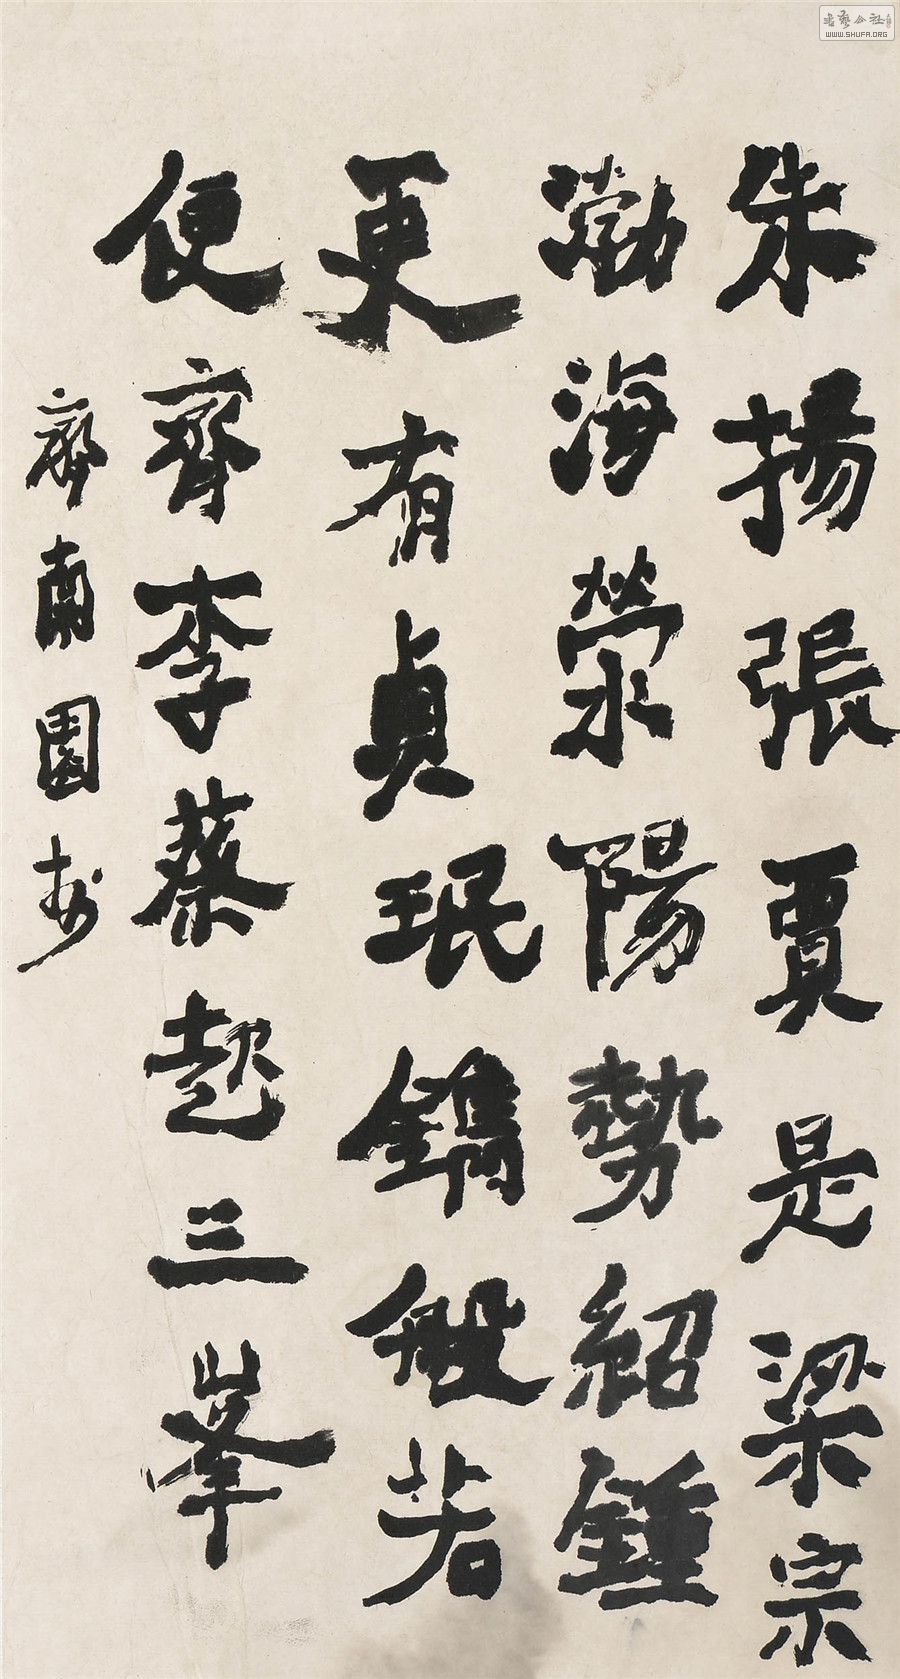 朱揚張賈是梁宗
渤海滎陽勢紹鍾
更有貞珉鐫般若
便齊李蔡起三峯
齋南園
書藝公社
WWW.SHUFA.ORG